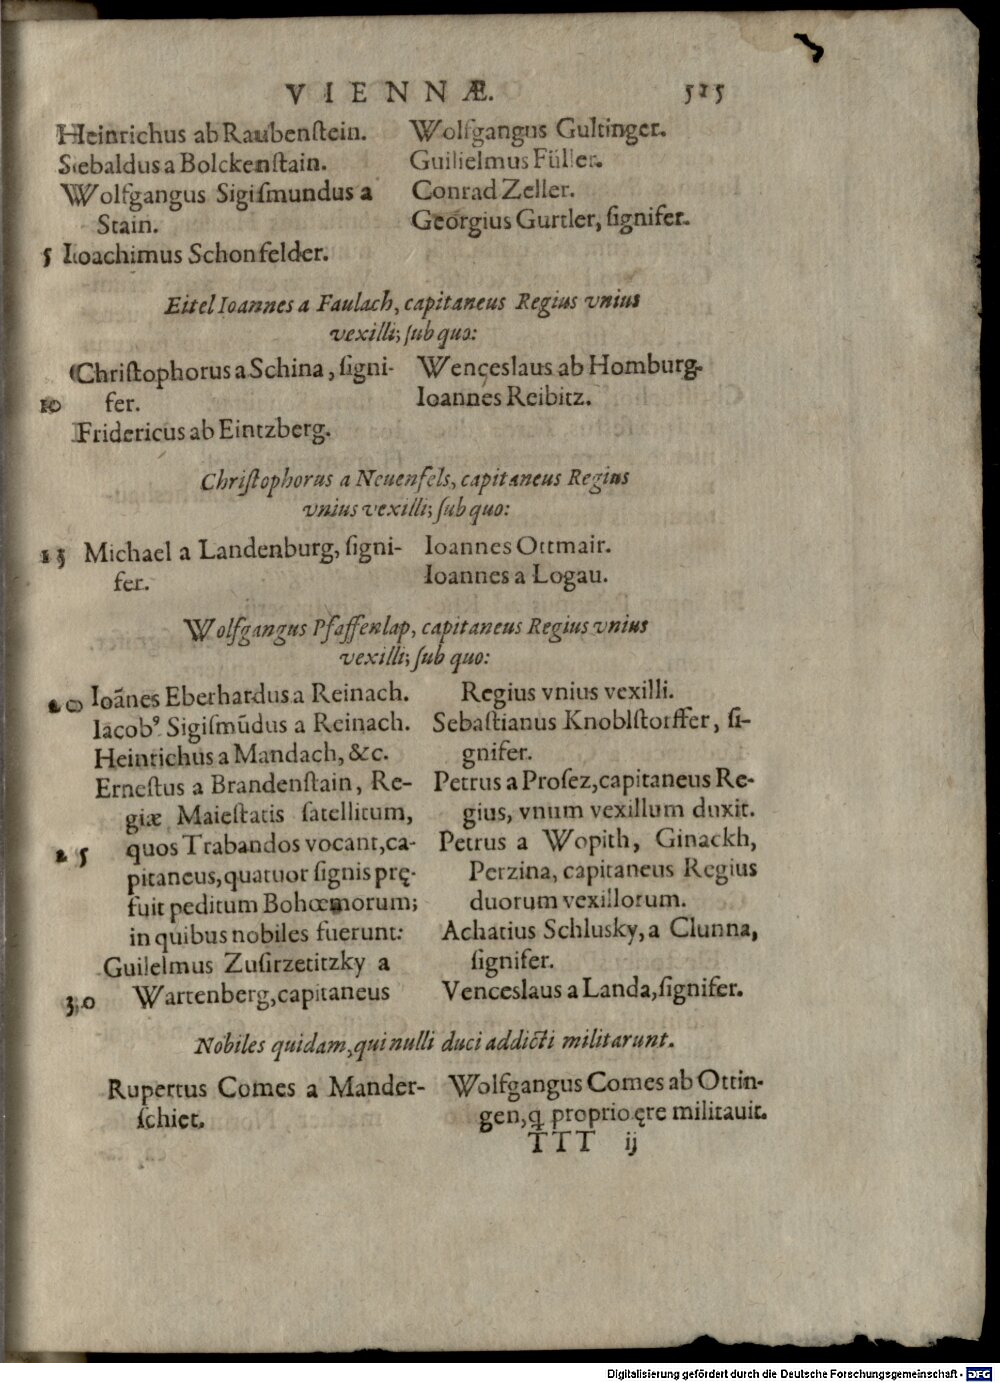 VIENNÆ. 525
Heinrichus ab Raubenſtein.
Siebaldus a Bolckenſtain.
Wolfgangus Sigiſmundus a
Stain.
5 Ioachimus Schonfelder.
Wolfgangus Gultinger.
Guilielmus Füller.
Conrad Zeller.
Georgius Gurtler, ſignifer.
Eitel Ioannes a Faulach, capitaneus Regius vnius
vexilli; ſub quo:
Chriſtophorus a Schina, ſigni-
10 fer.
Fridericus ab Eintzberg.
Wenceslaus ab Homburg.
Ioannes Reibitz.
Chriſtophorus a Neuenfels, capitaneus Regius
vnius vexilli; ſub quo:
15 Michael a Landenburg, ſigni-
fer.
Ioannes Ottmair.
Ioannes a Logau.
Wolfgangus Pfaffenlap, capitaneus Regius vnius
vexilli; ſub quo:
20 Ioãnes Eberhardus a Reinach.
Iacobꝰ Sigiſmũdus a Reinach.
Heinrichus a Mandach, &c.
Erneſtus a Brandenſtain, Re-
giæ Maieſtatis ſatellitum,
25 quos Trabandos vocant, ca-
pitaneus, quatuor ſignis prę-
fuit peditum Bohœmorum;
in quibus nobiles fuerunt:
Guilelmus Zuſirzetitzky a
30 Wartenberg, capitaneus
Regius vnius vexilli.
Sebaſtianus Knoblſtorffer, ſi-
gnifer.
Petrus a Proſez, capitaneus Re-
gius, vnum vexillum duxit.
Petrus a Wopith, Ginackh,
Perzina, capitaneus Regius
duorum vexillorum.
Achatius Schlusky, a Clunna,
ſignifer.
Venceslaus a Landa, ſignifer.
Nobiles quidam, qui nulli duci addicti militarunt.
Rupertus Comes a Mander-
ſchiet.
Wolfgangus Comes ab Otтin-
gen, q proprio ęre militauit.
TTT ij
Digitalisierung gefördert durch die Deutsche Forschungsgemeinschaft - DFG